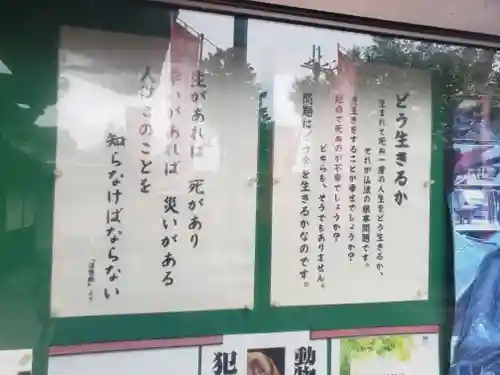 どう生きるか
生まれて死ぬ一度の人生をどう生きるか、
それが仏法の根本問題です。
長生きをすることが幸せでしょうか?
短命で死ぬのが不幸でしょうか?
どちらも、そうでもありません。
問題はどう今を生きるかなのです。
生があれば 死があり
幸いがあれば 災いがある
人はこのことを
知らなければならない
より
動物
犯